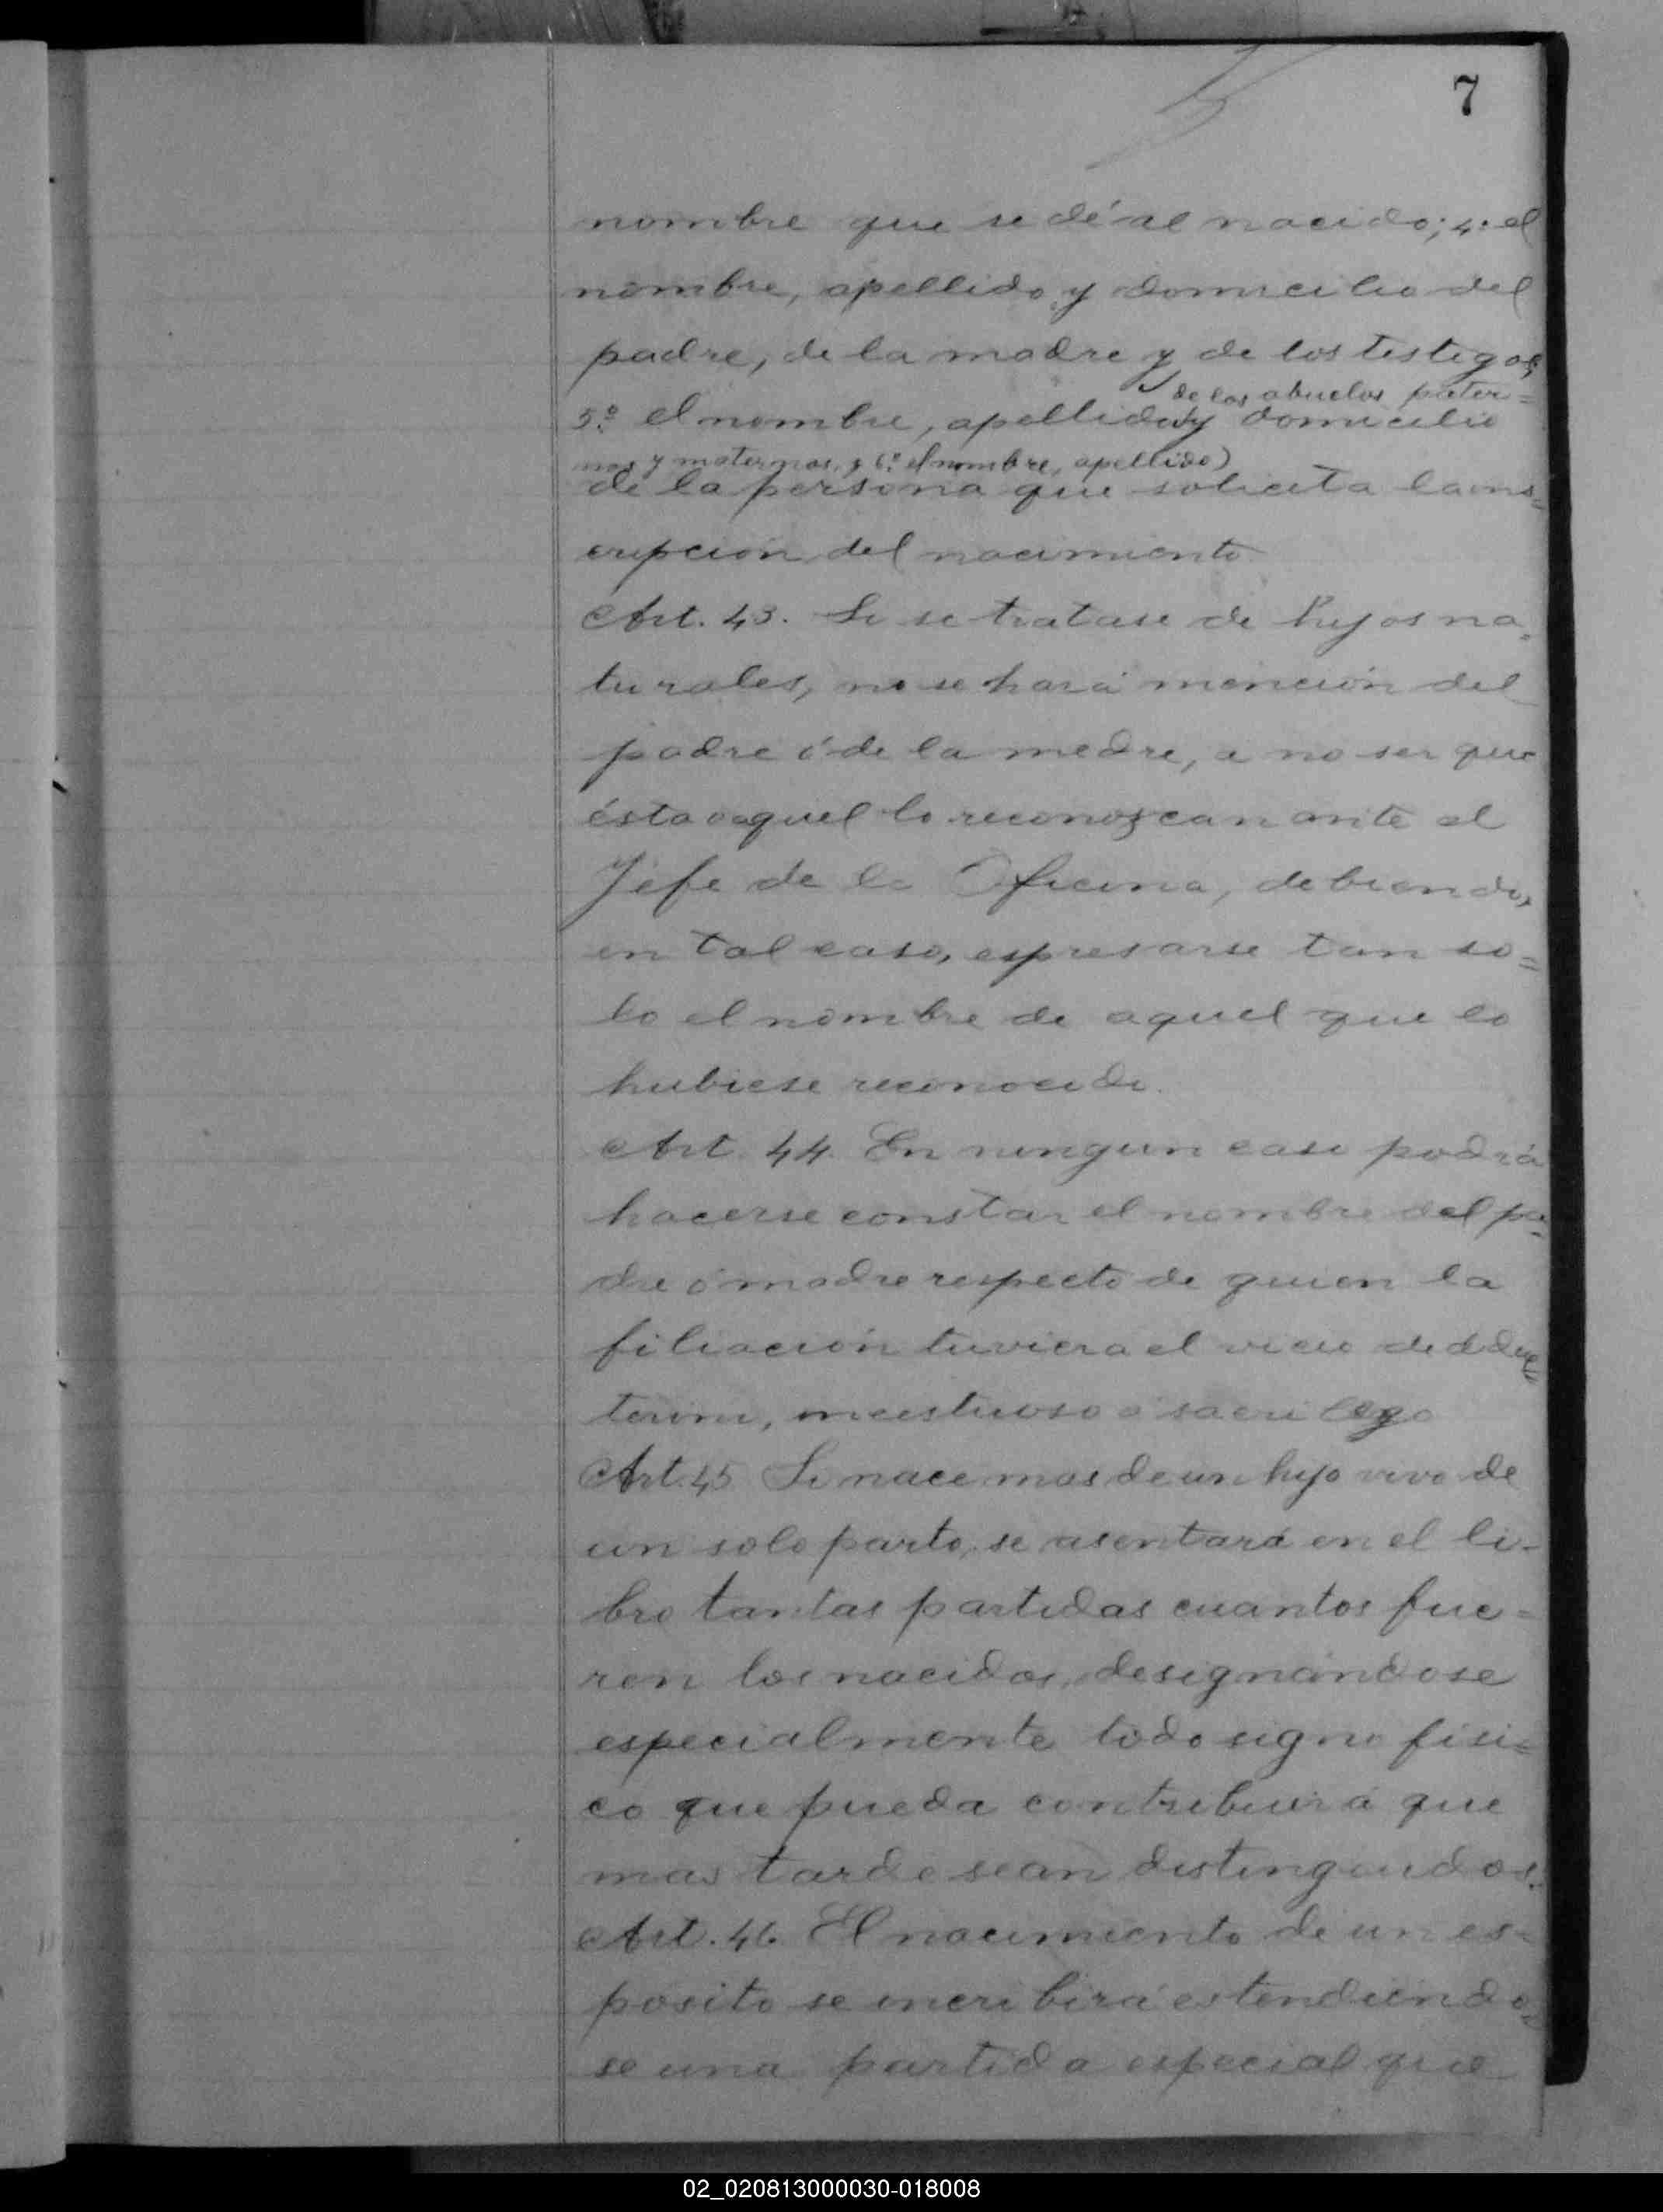 7
nombre que se dé al nacido; 4º el
nombre, apellido y domicilio del
padre, de la madre y de los testigos,
de los abuelos pater=
5º el nombre, apellido y domicilio
nos y maternos, y 6º el nombre, apellido)
de la persona que solicita la ins=
cripción del nacimiento
Art. 43. Si se tratase de hijos na=
turales, no se hará mención del
padre ó de la madre, a no ser que
ésta o aquel lo reconozcan ante el
Jefe de la Oficina, debiendo,
en tal caso, espresarse tan so=
lo el nombre de aquel que lo
hubiese reconocido.
Art. 44. En ningun caso podrá
hacerse constar el nombre del pa=
dre ó madre respecto de quien la
filiación tuviera el vicio de
terino, incestuoso ó sacrilego
Art. 45 Si nace mas de un hijo vivo de
un solo parto, se asentará en el li-
bro tantas partidas cuantos fue=
ron los nacidos, designándose
especialmente todo signo físi=
co que pueda contribuir á que
mas tarde sean distinguidos.
Art. 46. El nacimiento de un es=
posito se incribirá estendiendo=
se una partida especial que
02_020813000030-018008